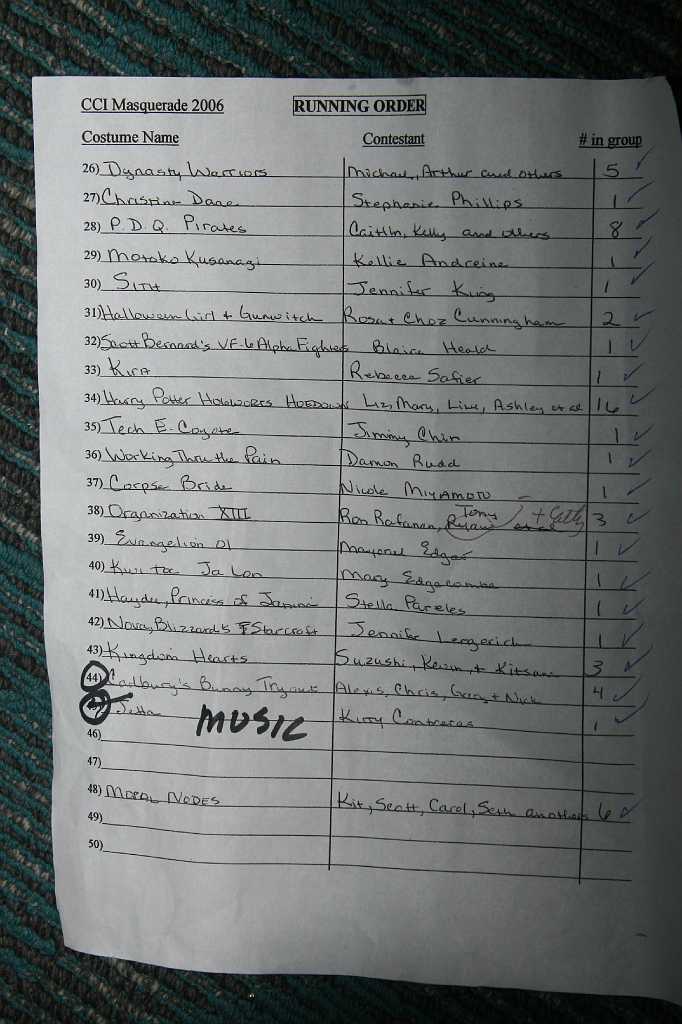 CCI Masquerade 2006 RUNNING ORDER
Costume Name Contestant # in group
26) Dynasty Warriors Michael, Arthur and others 5
27) Christine Daae Stephanie Phillips 1
28) P.D.Q. Pirates Caitlin, Kelly and others 8
29) Motoko Kusanagi Kellie Andreine 1
30) Sith Jennifer King 1
31) Halloween Girl + Gunwitch Rosa + Choz Cunningham 2
32) Scott Bernard's VF-6 Alpha Fighters Blaire Heald 1
33) Kira Rebecca Safier 1
34) Harry Potter Hogworts Hoedown Liz, Mary, Line, Ashley et al 16
35) Tech E. Coyote Jimmy Chin 1
36) Working Thru the Pain Damon Rudd 1
37) Corpse Bride Nicole Miyamoto 1
38) Organization XIII Ron Rafanan, Tony 3
39) Evangelion 01 Edgar 1
40) Ja Lon Mary Edgacombe 1
41) Haydee, Princess of Janina Stella Pareles 1
42) Nova, Blizzard's Starcraft Jennifer Lergerich 1
43) Kingdom Hearts Suzushi, Kevin, + Kitsune 3
44) Cadbury's Bunny Tryouts Alexis, Chris, Greg + Nick 4
45) MUSIC Kitty Contreras 1
46)
47)
48) Moral Nodes Kit, Scott, Carol, Seth an others 6
49)
50)